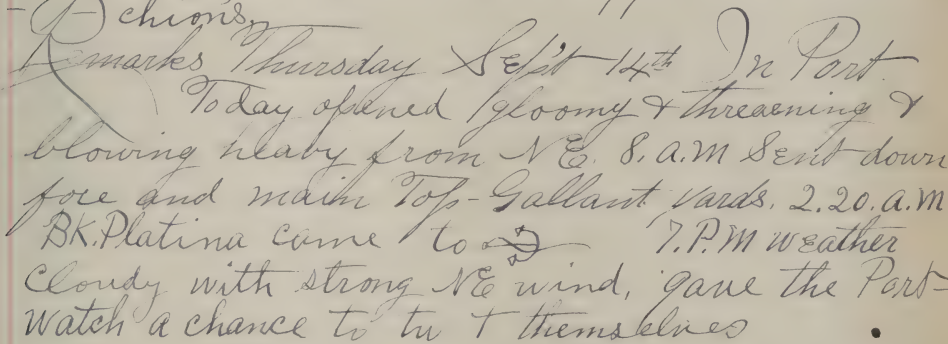 chions.
Remarks Thursday Sept 14th In Port
Today opened gloomy & threaening &
blowing heavy from NE. 8. a.m Sent down
fore and main Top-Gallant yards. 2.20. a.m
BK. Platina came to 7. P.M weather
Cloudy with strong NE wind, gave the Port-
Watch a chance to themselves